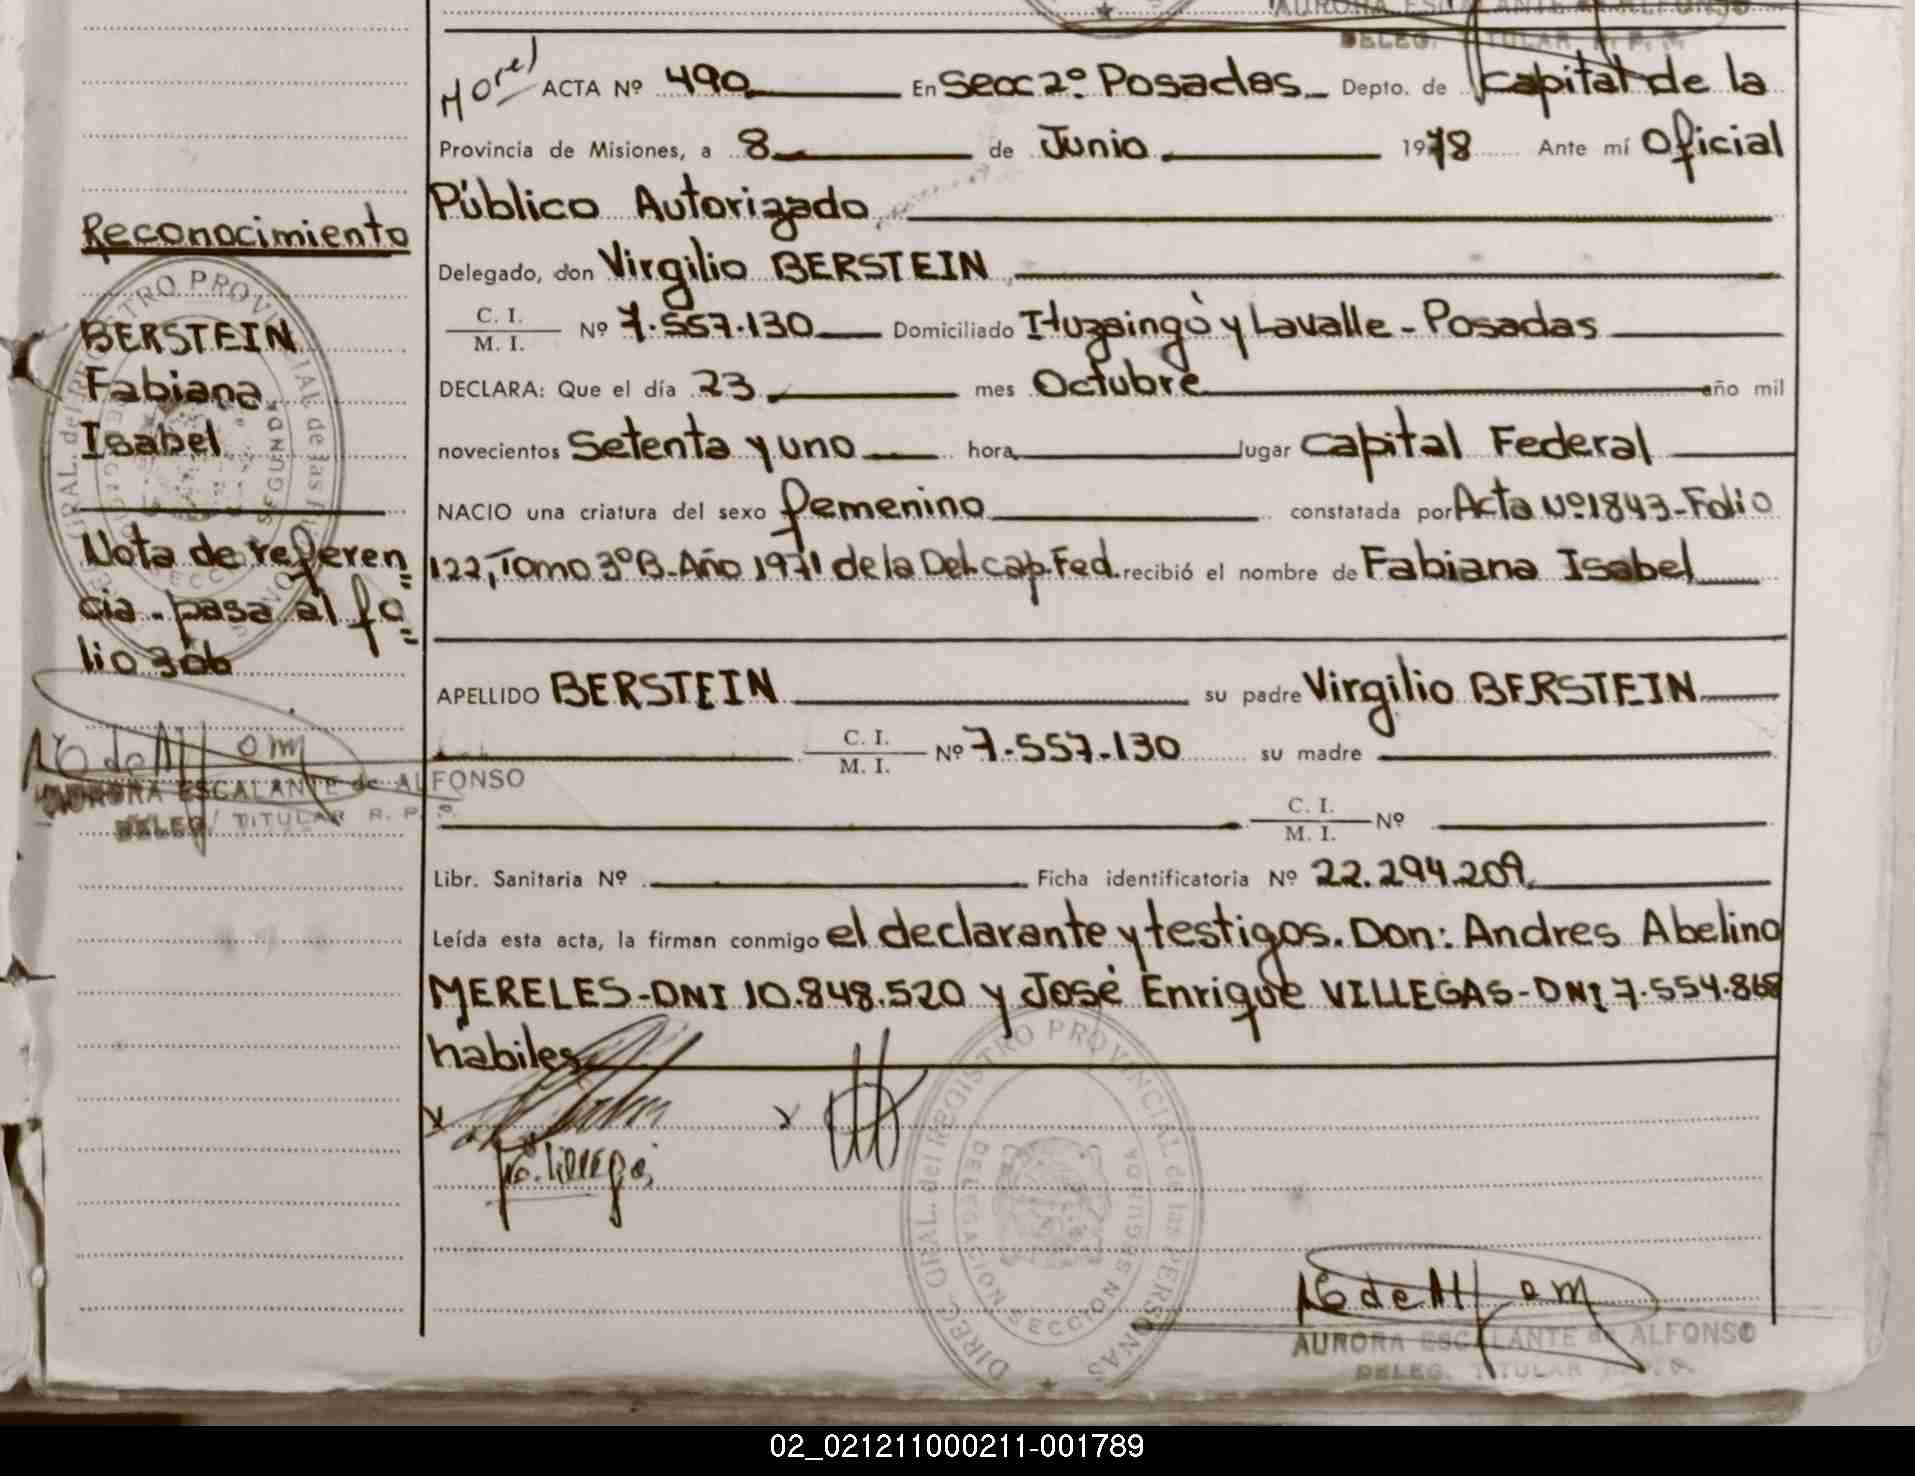 AURORA ESCALANTE de ALFONSO
DELEG. TITULAR R. P. P.
ACTA Nº 490 En Secc 2º Posadas Depto. de Capital de la
Provincia de Misiones, a 8 de Junio 1978 Ante mí Oficial
Público Autorizado
Delegado, don Virgilio BERSTEIN
C. I.
M. I. Nº 7.557.130 Domiciliado Ituzaingó y Lavalle - Posadas
DECLARA: Que el día 23 mes Octubre año mil
novecientos Setenta y uno hora lugar Capital Federal
NACIO una criatura del sexo femenino constatada por Acta Nº 1843-Folio
122, Tomo 3ºB-Año 1971 de la Del. Cap. Fed. recibió el nombre de Fabiana Isabel
APELLIDO BERSTEIN su padre Virgilio BERSTEIN
C. I.
M. I. Nº 7.557.130 su madre
C. I.
M. I. Nº
Libr. Sanitaria Nº Ficha identificatoria Nº 22.294.209
Leída esta acta, la firman conmigo el declarante y testigos. Don: Andres Abelino
MERELES-DNI 10.848.520 y José Enrique VILLEGAS-DNI 7.554.868
habiles
Reconocimiento
BERSTEIN
Fabiana
Isabel
Nota de referen=
cia - pasa al fo=
lio 306
AURORA ESCALANTE de ALFONSO
DELEG. TITULAR R. P. P.
DIREC. GRAL. del REGISTRO PROVINCIAL de las PERSONAS
DELEGACION SECCION SEGUNDA
AURORA ESCALANTE de ALFONSO
DELEG. TITULAR
02_021211000211-001789